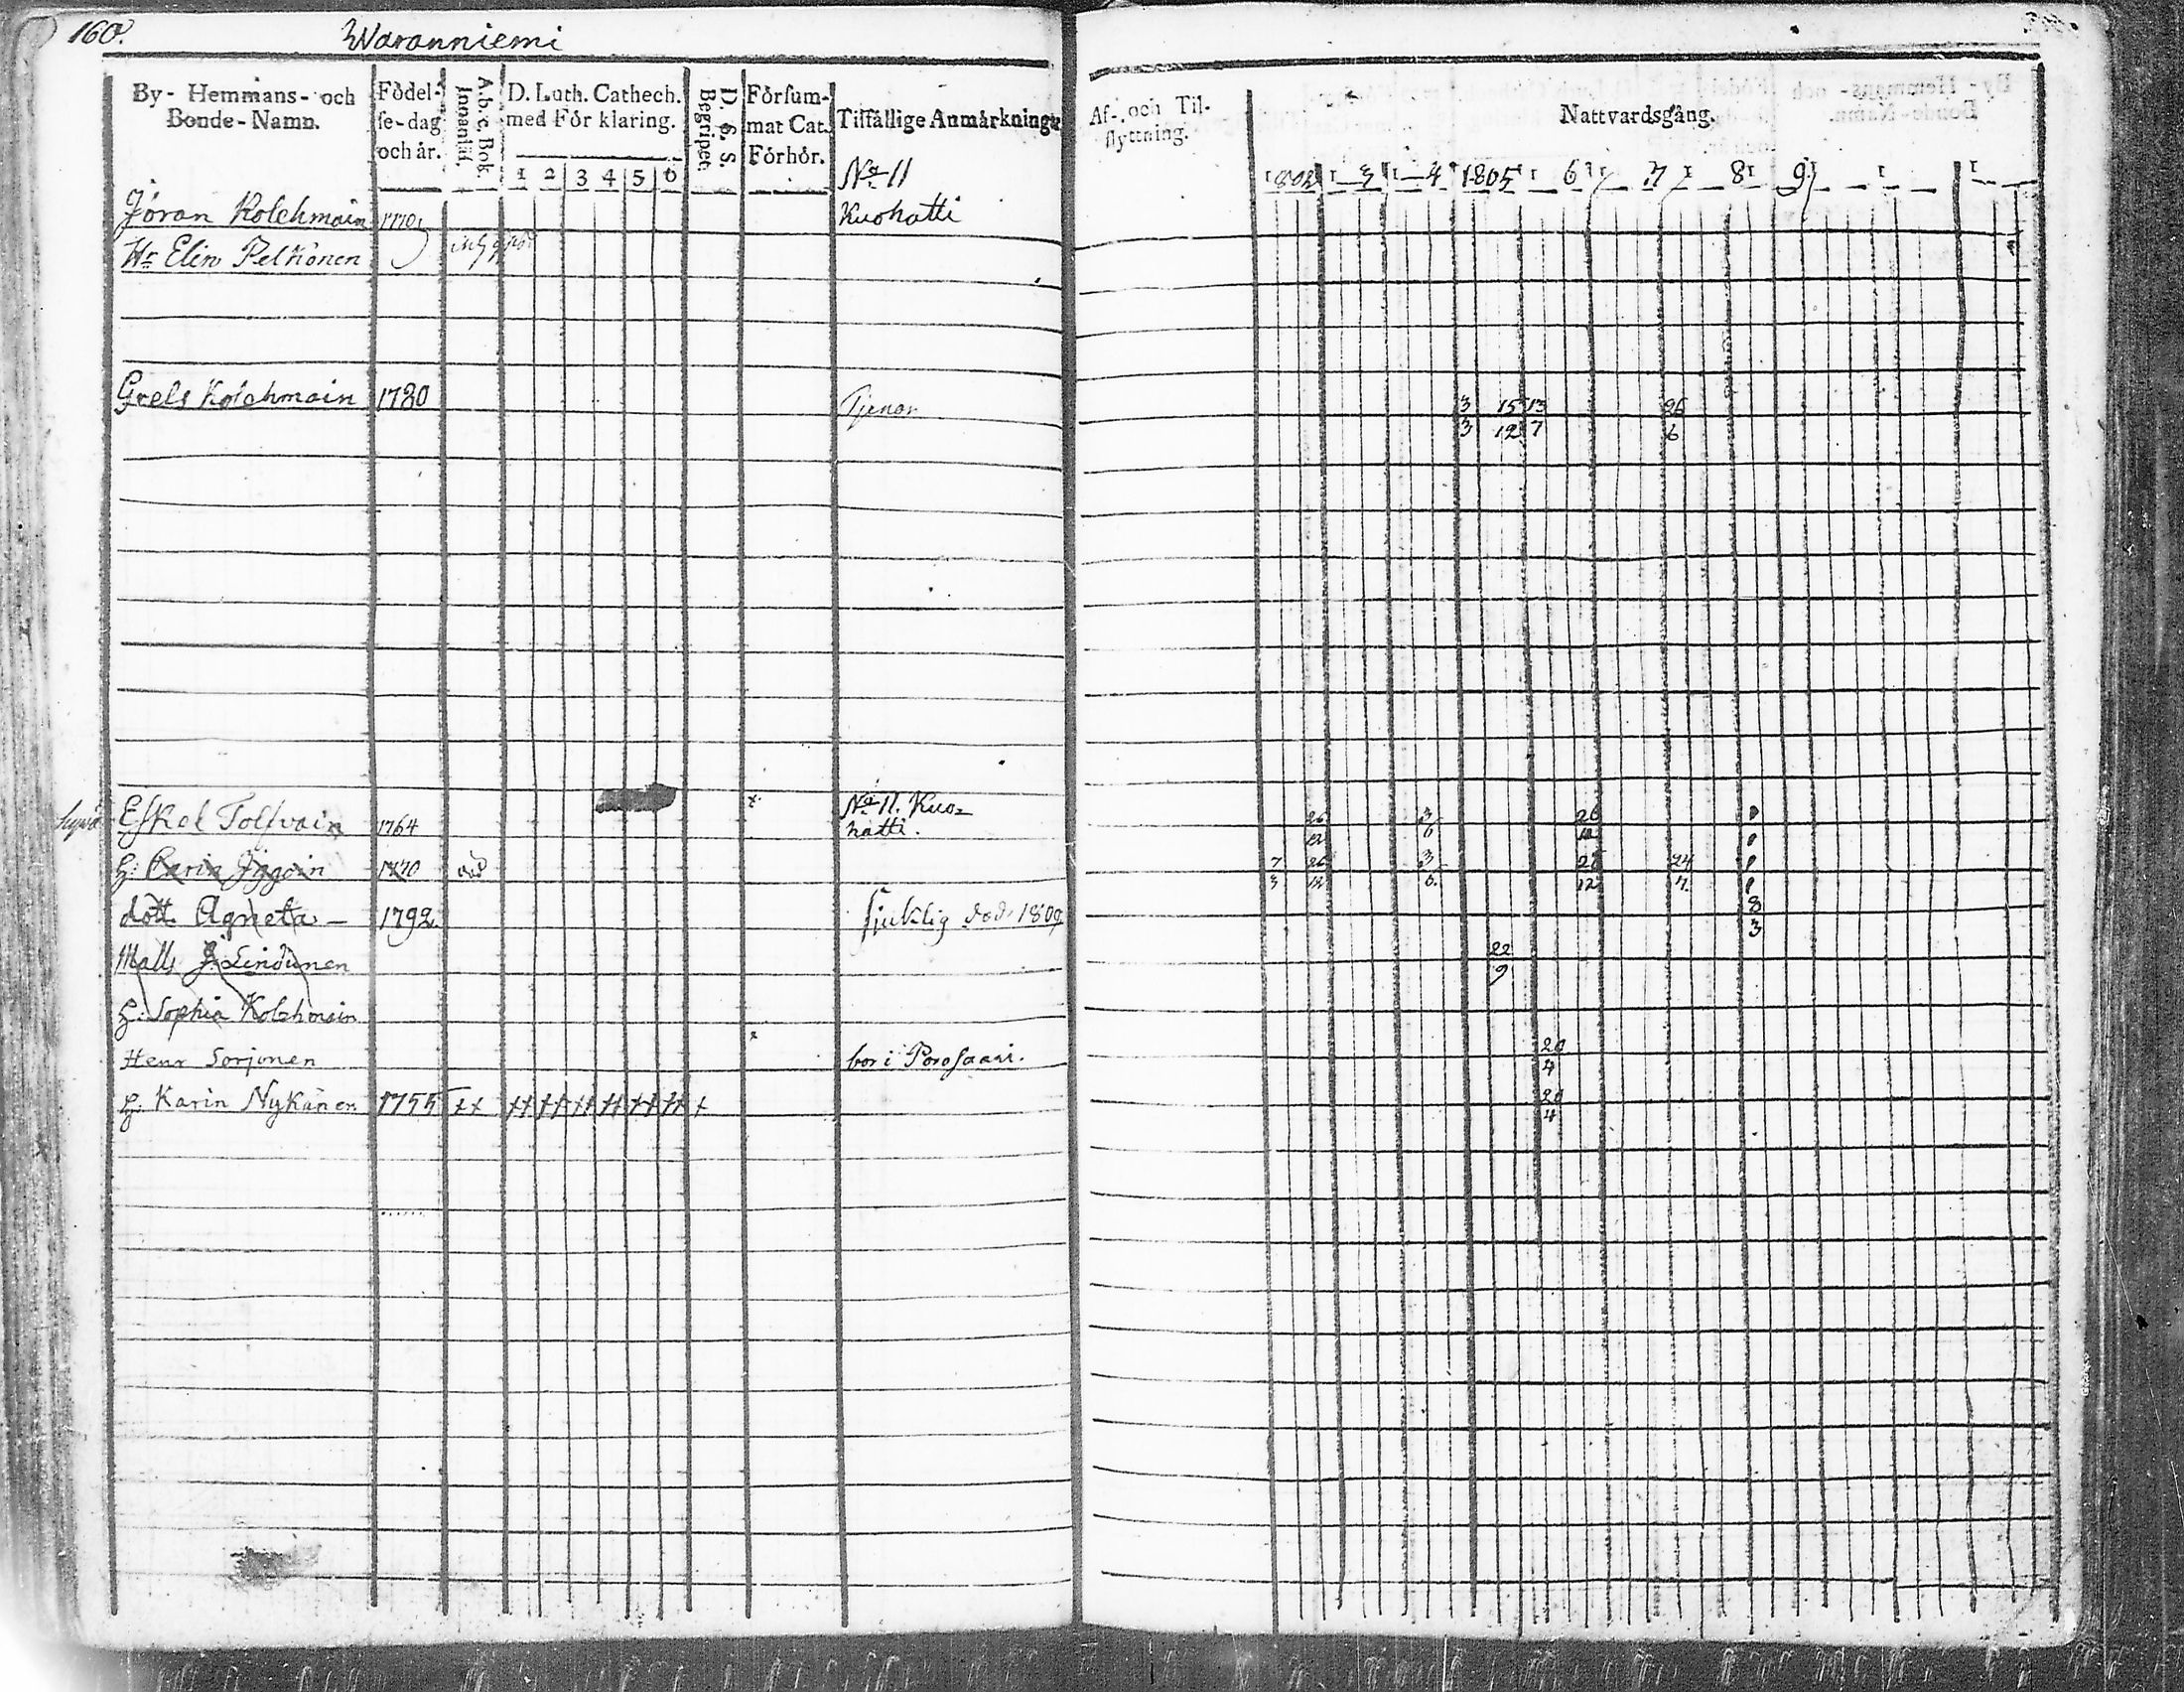 160.
Waranniemi
By- Hemmans- och Bonde-Namn.
Födelse-dag och år.
A.b.c. Bok. Innanläs.
D. Luth. Cathech. med För klaring.
1 2 3 4 5 6
D. C. S. Begripet.
Försummat Cat. Förhör.
Tilfällige Anmärkningar
Af- och Tilflyttning.
Nattvardsgång.
1802 3 4 1805 6 7 8 9
No 11
Jöran Kolehmain 1770 Kuohatti
Hr Elin Pelkonen
Grels Kolehmain 1780 Tjenar 3 15 13 26
3 12 7 6
Eskel Tolfvain 1764 x No 11. Kuo=
hatti. 26 3 26
12 6 12
h: Carin 1770 död 7 26 3 26 24
3 12 6. 12 7
dott. Agneta 1792 sjuklig död 1809 8
3
Matts Lindunen 22
9
h: Sophia Kolehmain
Henr Sorjonen x bor i Porosaari. 20
4
h: Karin Nykänen 1755 xx H H H H H H x 20
4